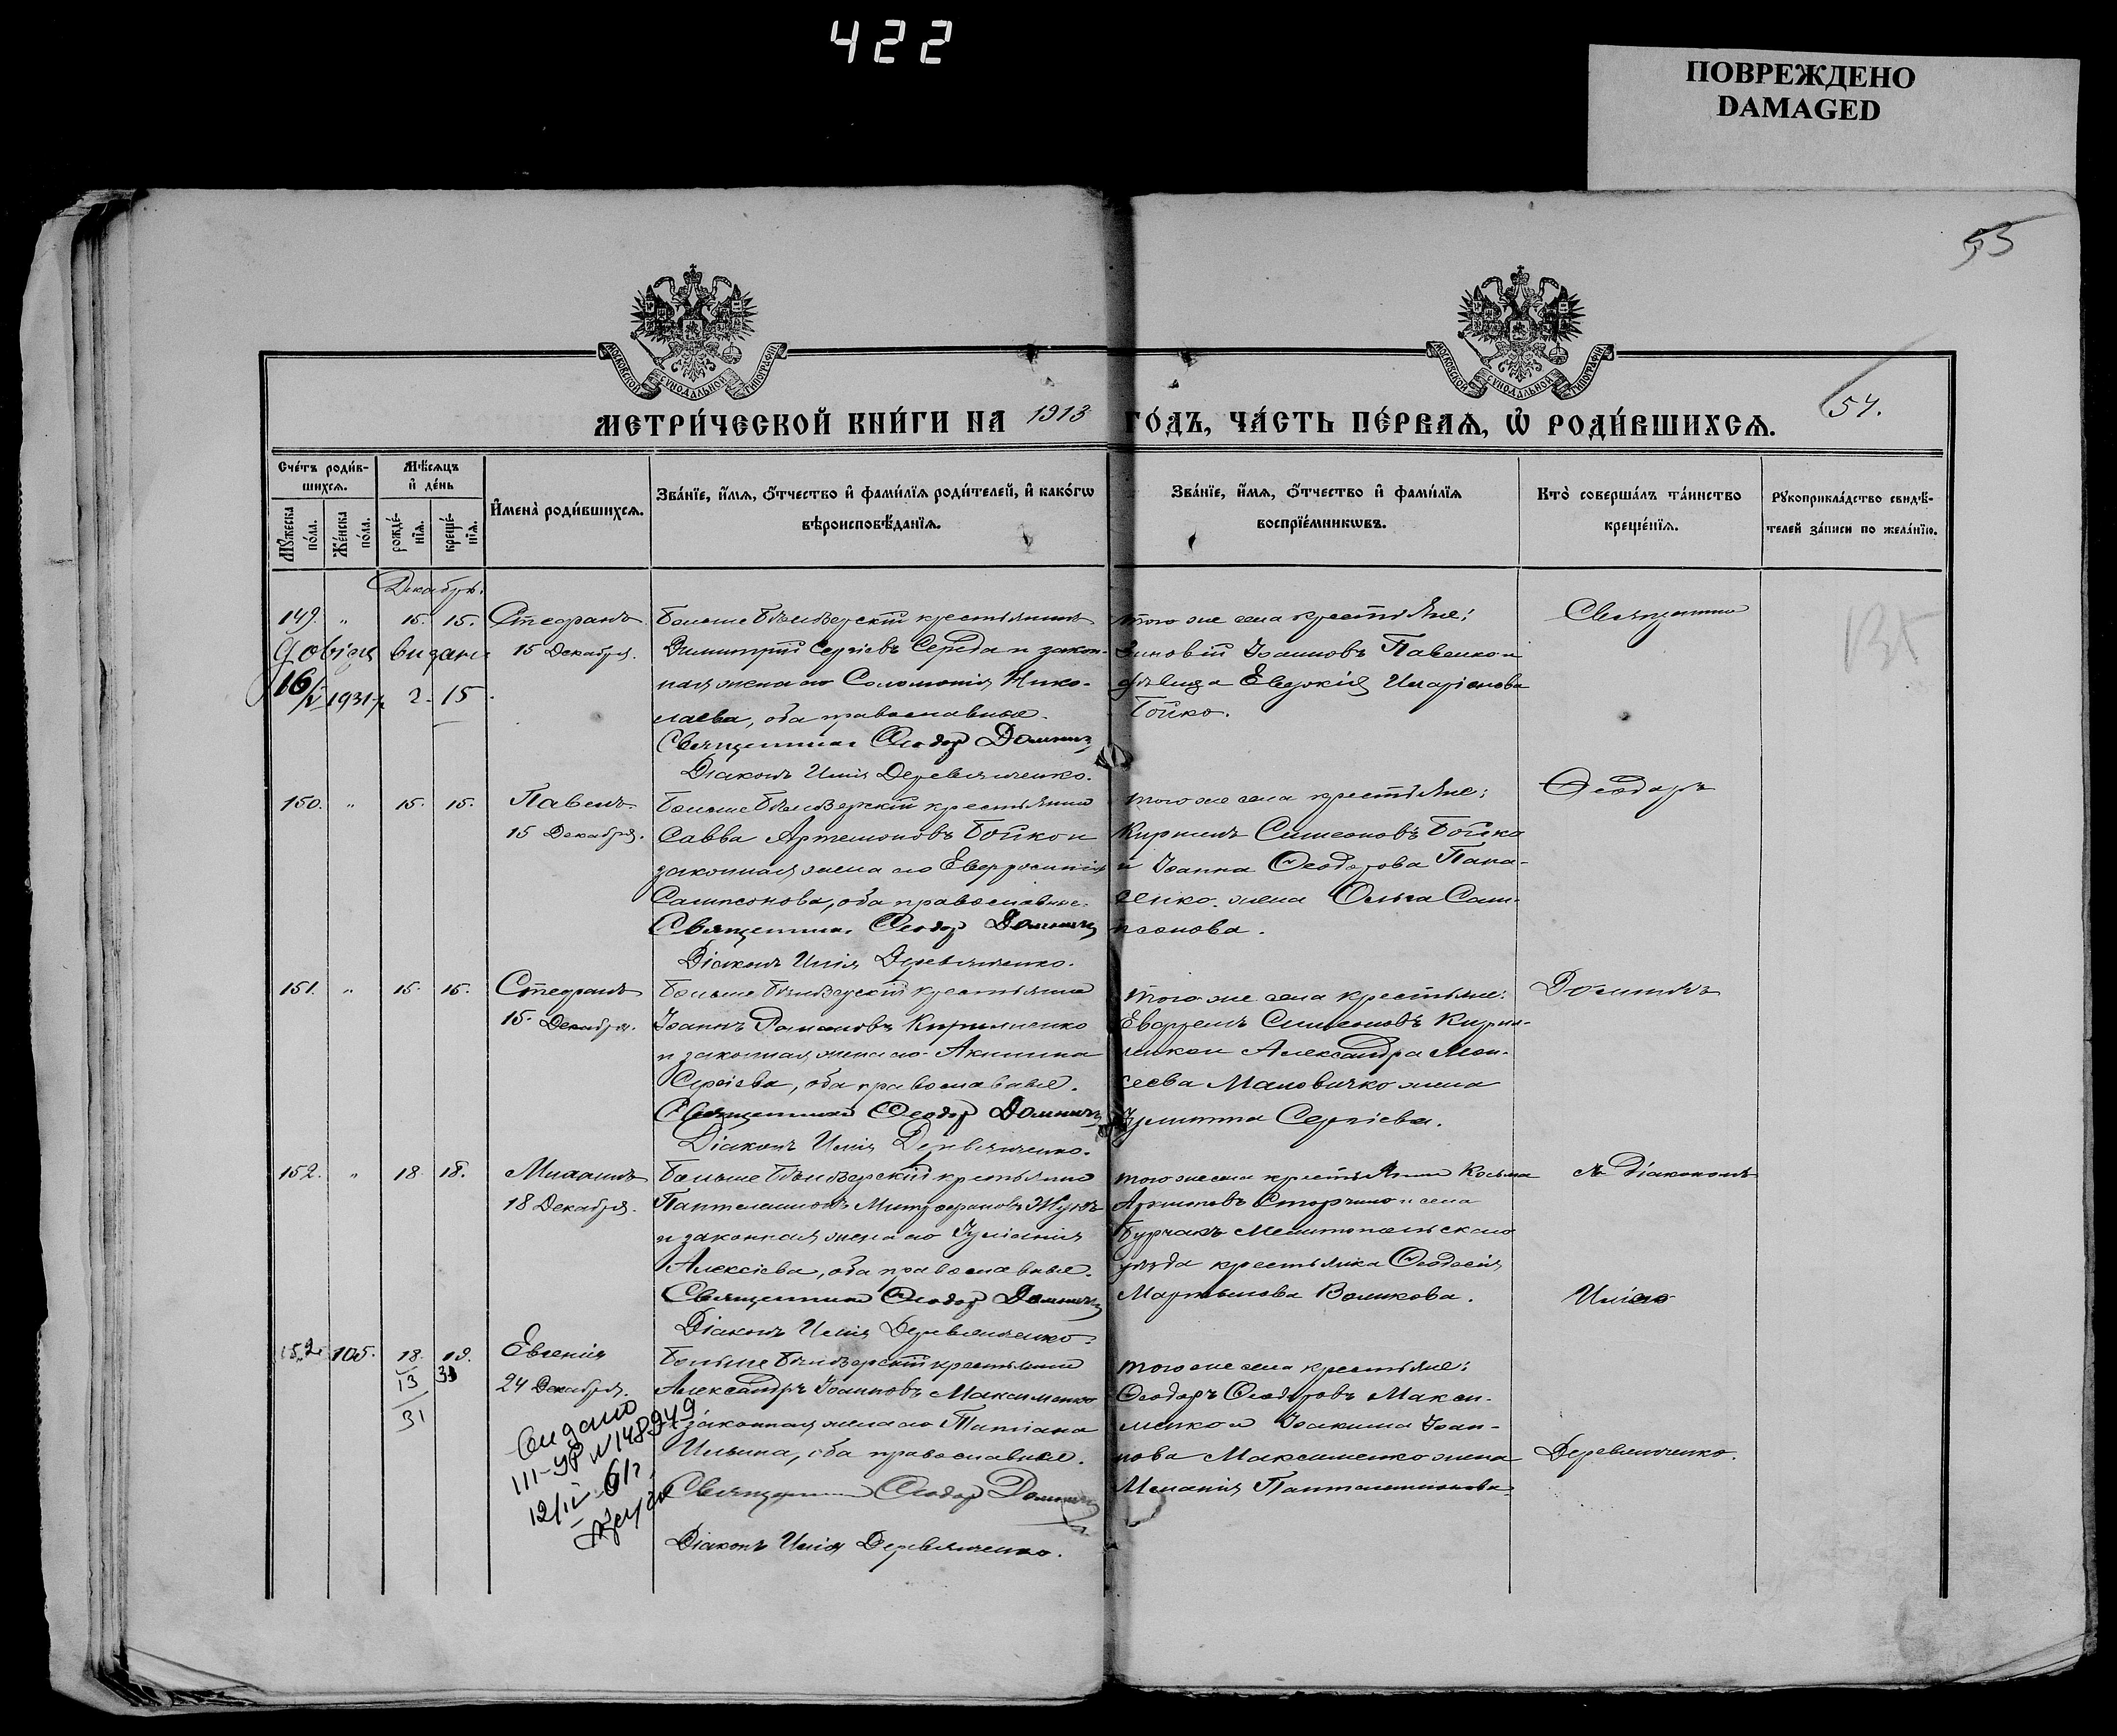 422
ПОВРЕЖДЕНО
DAMAGED
55
МОСКОВСКОЙ СѴНОДАЛЬНОЙ ТИПОГРАФІИ
МОСКОВСКОЙ СѴНОДАЛЬНОЙ ТИПОГРАФІИ
МЕТРИ́ЧЕСКОЙ КНИ́ГИ НА 1913 ГО́ДЪ, ЧА́СТЬ ПЕ́РВАѦ, Ѽ РОДИ́ВШИХСѦ.
54.
Сче́тъ роди́в-
шихсѧ.
Мꙋ́жеска по́ла.
Же́нска по́ла.
Мѣ́сѧцъ
и҆ де́нь
рожде́-
нїѧ.
креще́-
нїѧ.
И҆мена̀ роди́вшихсѧ.
Зва́нїе, и҆́мѧ, ѻ҆́тчество и҆ фами́лїѧ роди́телей, и҆ како́гѡ
вѣроисповѣ́данїѧ.
Зва́нїе, и҆́мѧ, ѻ҆́тчество и҆ фами́лїѧ
воспрїе́мникѡвъ.
Кто̀ соверша́лъ та́инство
креще́нїѧ.
Рꙋкоприкла́дство свидѣ́-
телей за́писи по жела́нїю.
Декабрь.
149. " 15. 15. Стефанъ
15 Декабря.
Больше Бѣлозерскій крестьянинъ
Димитрій Сергіевъ Середа и закон-
ная жена его Соломонія Нико-
лаева, оба православные.
Священникъ Ѳеодор
Діаконъ Илія Деревянченко.
того же села крестьяне:
Зиновій Іоанновъ Павленко и
дѣвица Евдокія Иларіонова
Бойко.
Священникъ
Довідка видана
16/V 1931 р. 2 - 15
150. " 15. 15. Павелъ
15 Декабря.
Больше Бѣлозерскій крестьянинъ
Савва Артемоновъ Бойко и
законная жена его Евфросинія
Сампсонова, оба православные.
Священник Ѳеодор
Діаконъ Илія Деревянченко.
того же села крестьяне:
Кириллъ Симеоновъ Бойко
и Іоанна Ѳеодорова Пана-
сенко жена Ольга Сам-
псонова.
Ѳеодоръ
151. " 15. 15. Стефанъ
15 Декабря.
Больше Бѣлозерскій крестьянинъ
Іоаннъ Романовъ Кириленко
и законная жена его Акилина
Сергіева, оба православные.
Священникъ Ѳеодор
Діаконъ Илія Деревянченко.
того же села крестьяне:
Симеоновъ Кири-
ленко и Александра Мои-
сеева Маловичко жена
Іулитта Сергіева.
152. " 18 18. Михаилъ
18 Декабря.
Больше Бѣлозерскій крестьянинъ
Пантелеимонъ Митрофановъ Жукъ
и законная жена его Іуліанія
Алексіева, оба православные.
Священникъ Ѳеодор
Діаконъ Илія Деревянченко.
того же села крестьянинъ Косьма
Архиповъ и села
Бурчакъ Мелитопольскаго
уѣзда крестьянка Ѳеодосія
Мартынова Волкова.
съ діакономъ
Иліею
152. 105. 18. 19. Евгенія
13 31
31
24 Декабря.
Больше Бѣлозерскій крестьянинъ
Александръ Іоанновъ Максименко
и законная жена его Татіана
Ильина, оба православные.
Священникъ Ѳеодор
Діаконъ Илія Деревянченко.
того же села крестьяне:
Ѳеодоръ Ѳеодоровъ Макси-
менко и Іоакима Іоан-
нова Максименко жена
Меланія Пантелеимонова
Деревянченко.
Видано
III-УР N 148949
12/IV 61 г.
135